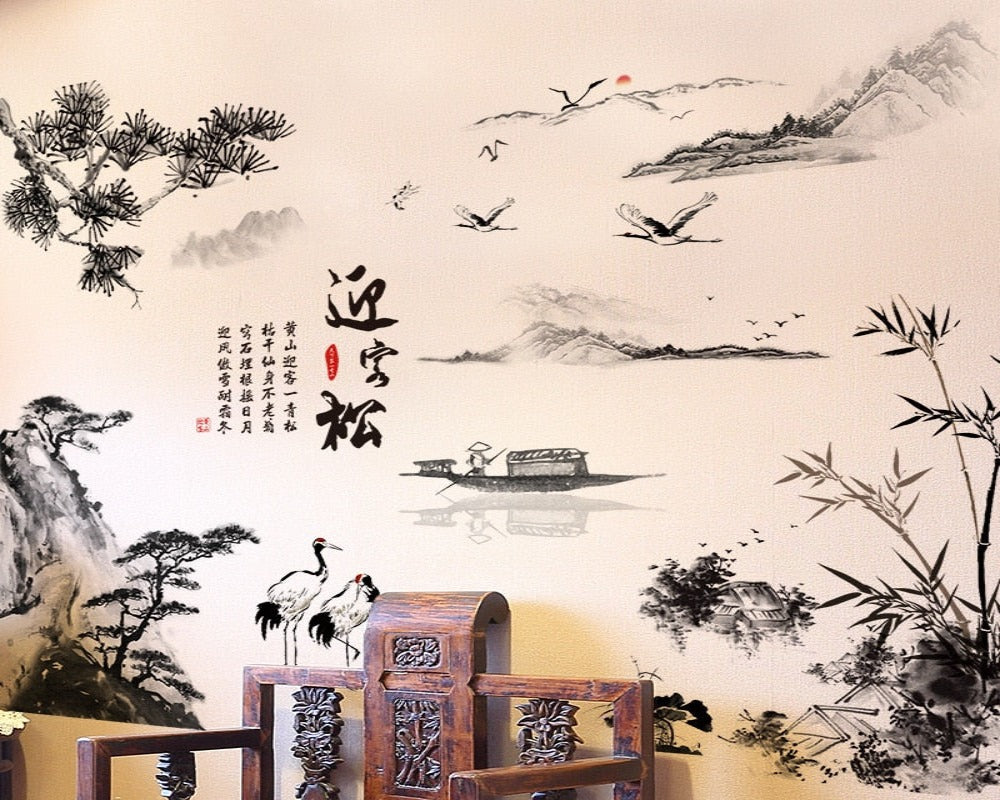 迎客松
黄山迎客一青松
枯干仙身不老翁
穷石埋根接日月
迎风傲雪耐霜冬